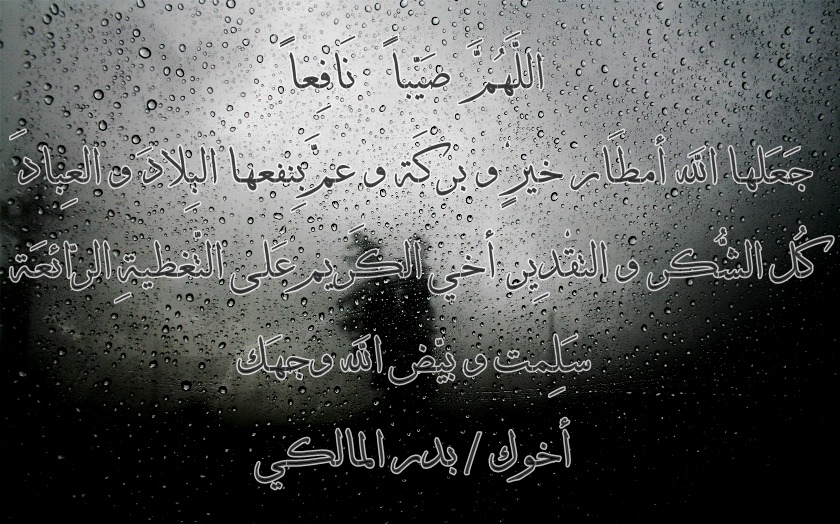 اللَّهُمَّ صَيّباً نَافِعاً
جَعَلها الله أمطَار خيرٍ و بركَة و عمَّ بِنفعها البِلادَ و العِبادَ
كُل الشُّكر و التقْدِير أخي الكَريم عَلى التَّغطيةِ الرائعَة
سَلِمت و بيَّض الله وجهَك
أخوك / بدر المالكي